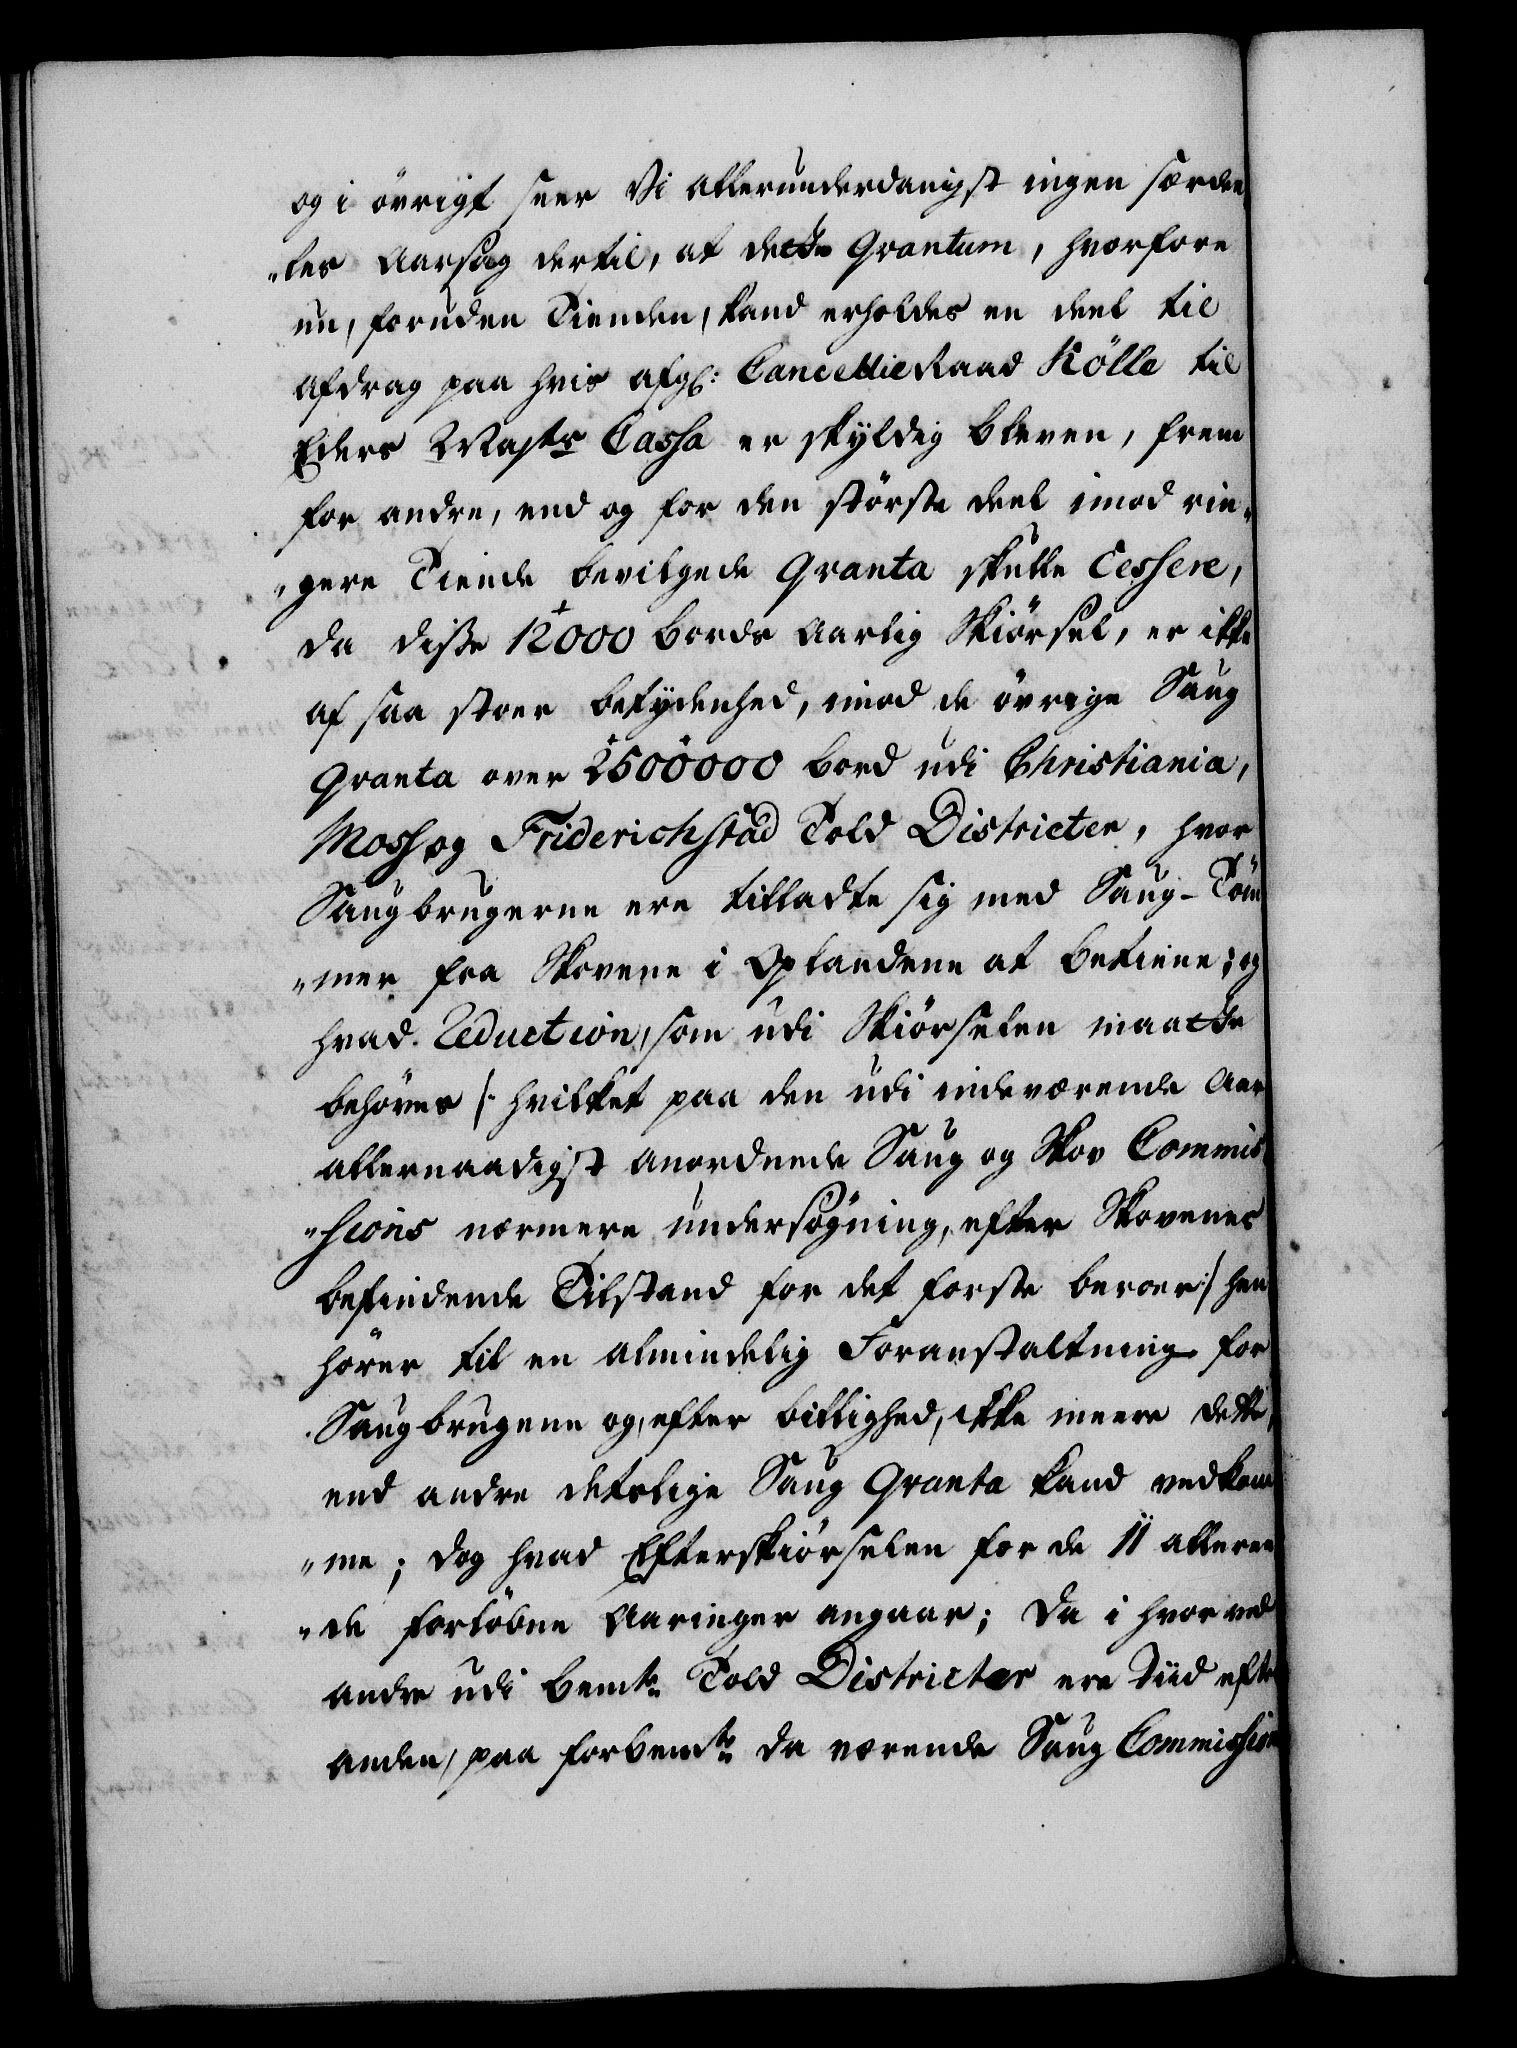 og i övrigt seer Vi allerunderdanigst ingen særdee
„les Aarsag dertil, at dette Qvantum, hvorfore
nu, foruden Tienden, kand erholdes en deel til
afdrag paa hvis afg: CancellieRaad Kölle til
Eders Mayts Cassa er skyldig bleven, frem
for andre, end og for den störste deel imod rin„
„gere Tiende bevilgede Qvanta skulle Cessere,
da disse 12000 bords Aarlig Skiörsel, er ikke
af saa stoer betydenhed, imod de övrige Saug
Qvanta over 2500000 bord udi Christiania,
Moss og Friderichstad Told Districter, hvor
Saugbrugerne ere tilladte sig med Saug-Töm
„mer fra Skovene i Oplandene at betiene; og
hvad Reduction, som udi Skiörselen maatte
behöves /: hvilket paa den udi indeværende Aar
allernaadigst anordnede Saug og Skov Commis
„sions nærmere undersøgning, efter Skovenes
befindende Tilstand for det forste beroer :/ hen
hörer til en almindelig Foranstaltning for
Saugbrugene og, efter billighed, ikke meere dette,
end andre deslige Saug Qvanta kand vedkom
„me; dog hvad Efterskiörselen for de 11 alleree
„de forlöbne Aaringer angaar; Da i hvor vel
andre udi bemte Told Districter ere Tiid efter
anden, paa forbemte da værende Saug Commission